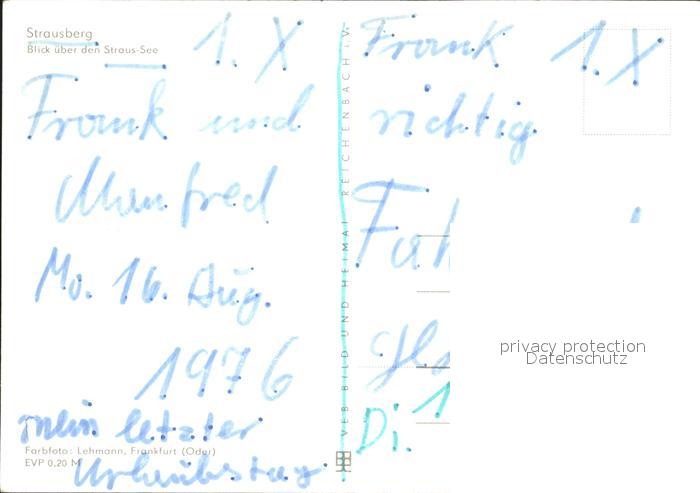 Strausberg
Blick über den Straus-See
1. X
Frank und
Manfred
Mo. 16. Aug.
1976
mein letzter
Farbfoto: Lehmann, Frankfurt (Oder)
EVP 0,20 M
Urlaubstag
VEB BILD UND HEIMAT REICHENBACH i.V.
Frank 1. X
richtig
Di. 1
privacy protection
Datenschutz